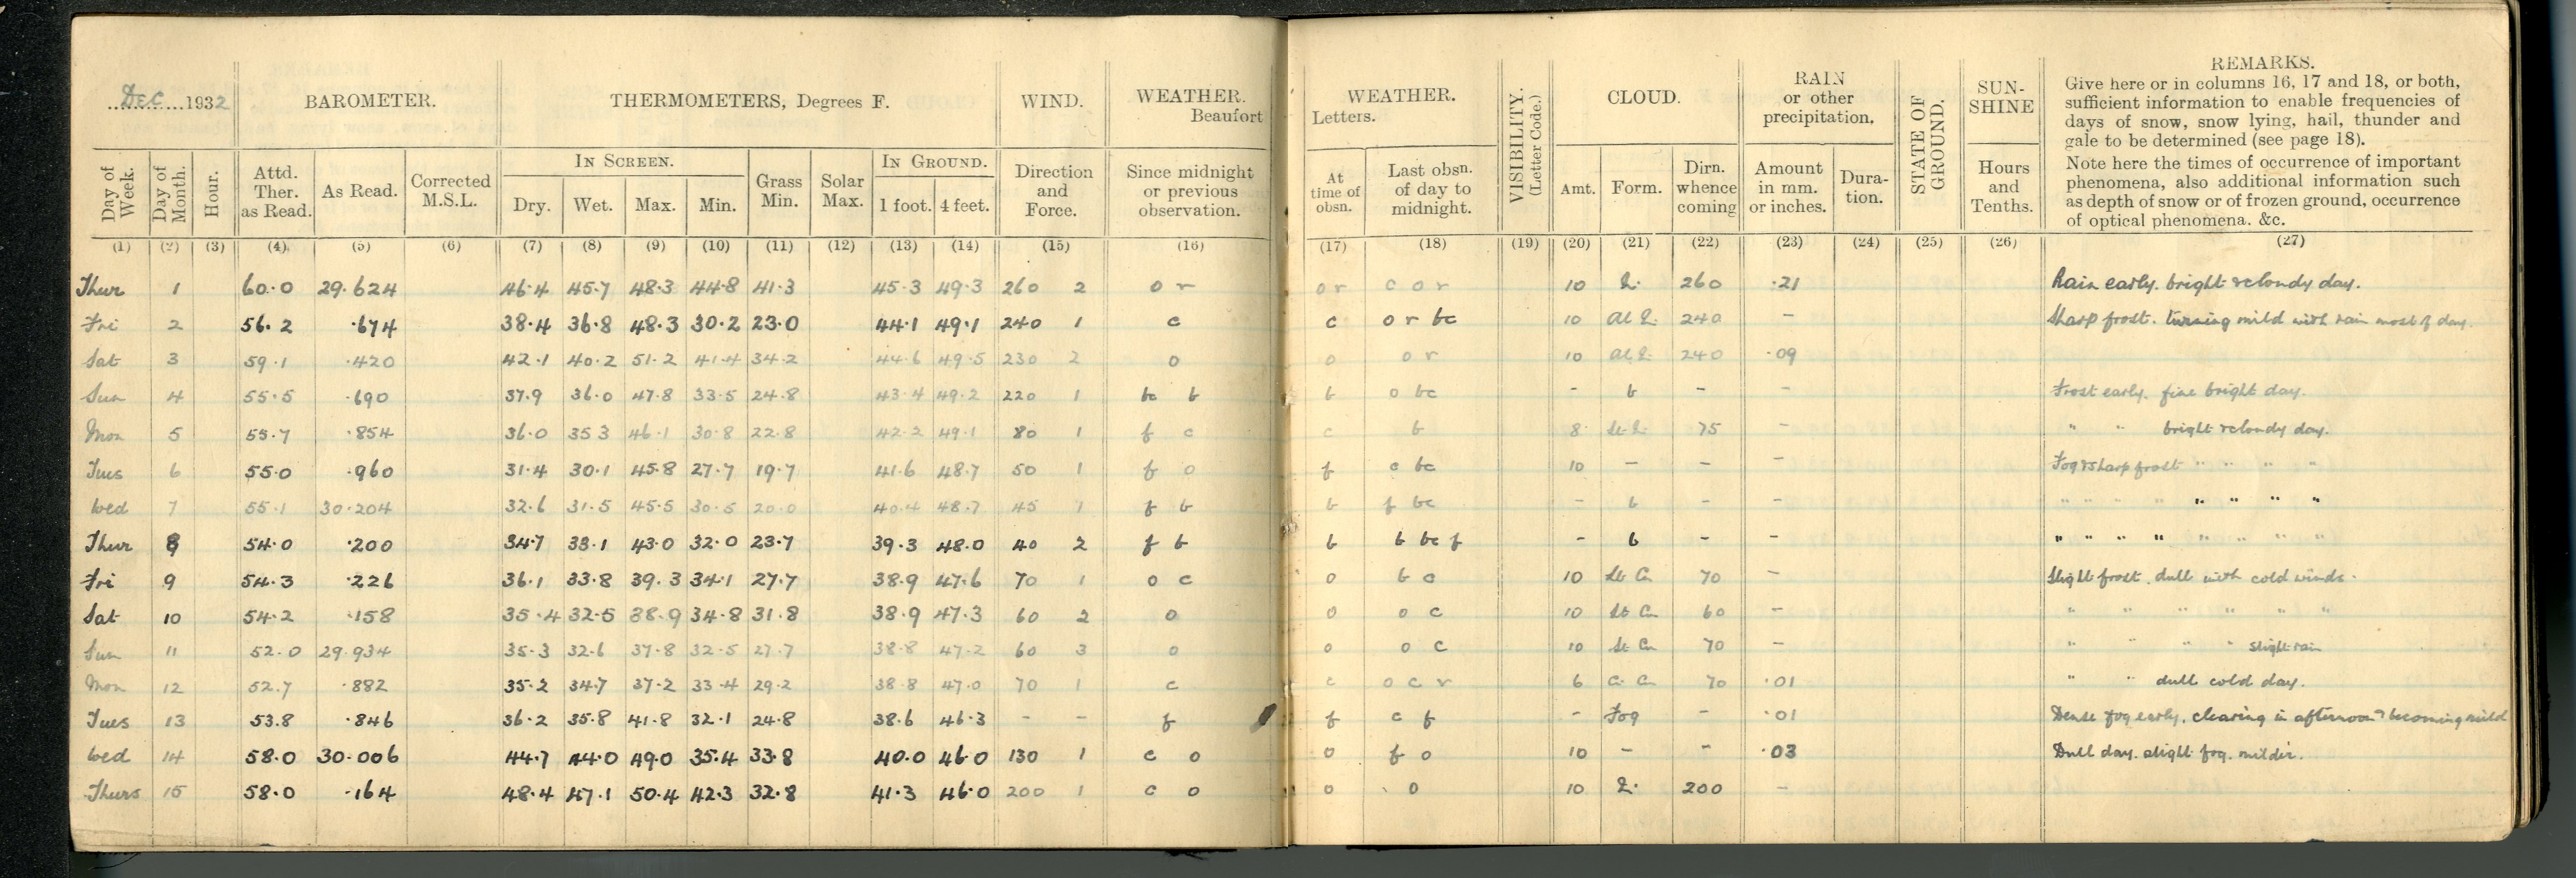 DEC 1932
BAROMETER.
THERMOMETERS, Degrees F.
WIND.
WEATHER.
Beaufort
WEATHER.
Letters.
VISIBILITY. (Letter Code.)
CLOUD.
RAIN
or other
precipitation.
STATE OF GROUND.
SUN-
SHINE
REMARKS.
Give here or in columns 16, 17 and 18, or both,
sufficient information to enable frequencies of
days of snow, snow lying, hail, thunder and
gale to be determined (see page 18).
Note here the times of occurrence of important
phenomena, also additional information such
as depth of snow or of frozen ground, occurrence
of optical phenomena. &c.
Day of Week.
Day of Month.
Hour.
Attd. Ther. as Read.
As Read.
Corrected M.S.L.
IN SCREEN.
Dry. Wet. Max. Min.
Grass Min.
Solar Max.
IN GROUND.
1 foot. 4 feet.
Direction and Force.
Since midnight or previous observation.
At time of obsn.
Last obsn. of day to midnight.
Amt. Form. Dirn. whence coming
Amount in mm. or inches.
Dura- tion.
Hours and Tenths.
(1) (2) (3) (4) (5) (6) (7) (8) (9) (10) (11) (12) (13) (14) (15) (16) (17) (18) (19) (20) (21) (22) (23) (24) (25) (26) (27)
Thur 1 60.0 29.624 46.4 45.7 48.3 44.8 41.3 45.3 49.3 260 2 o r o r c o r 10 260 .21 Rain early. bright & cloudy day.
Fri 2 56.2 .674 38.4 36.8 48.3 30.2 23.0 44.1 49.1 240 1 c c o r bc 10 240 - Sharp frost. turning mild with rain most of day.
Sat 3 59.1 .420 42.1 40.2 51.2 41.4 34.2 44.6 49.5 230 2 o o o r 10 240 .09
Sun 4 55.5 .690 37.9 36.0 47.8 33.5 24.8 43.4 49.2 220 1 bc b b o bc - b - - Frost early. fine bright day.
Mon 5 55.7 .854 36.0 35 3 46.1 30.8 22.8 42.2 49.1 80 1 f c c b 8 75 - " " bright & cloudy day.
Tues 6 55.0 .960 31.4 30.1 45.8 27.7 19.7 41.6 48.7 50 1 f o f c bc 10 - - - Fog & sharp frost " " " "
Wed 7 55.1 30.204 32.6 31.5 45.5 30.5 20.0 40.4 48.7 45 1 f b b f bc - b - " " " " " " " "
Thur 8 54.0 .200 34.7 33.1 43.0 32.0 23.7 39.3 48.0 40 2 f b b b bc f - b - - " " " " " " " "
Fri 9 54.3 .226 36.1 33.8 39.3 34.1 27.7 38.9 47.6 70 1 o c o b c 10 St Cu 70 - Slight frost. dull with cold winds.
Sat 10 54.2 .158 35.4 32.5 38.9 34.8 31.8 38.9 47.3 60 2 o o o c 10 St Cu 60 - " " " " " "
Sun 11 52.0 29.934 35.3 32.6 37.8 32.5 27.7 38.8 47.2 60 3 o o o c 10 St Cu 70 - " " " " slight rain
Mon 12 52.7 .882 35.2 34.7 37.2 33.4 29.2 38.8 47.0 70 1 c c o c r 6 70 .01 " " dull cold day.
Tues 13 53.8 .846 36.2 35.8 41.8 32.1 24.8 38.6 46.3 - - f f c f - Fog - .01 Dense fog early. clearing in afternoon & becoming mild
Wed 14 58.0 30.006 44.7 44.0 49.0 35.4 33.8 40.0 46.0 130 1 c o o f o 10 - - .03 Dull day. slight fog. milder.
Thurs 15 58.0 .164 48.4 47.1 50.4 42.3 32.8 41.3 46.0 200 1 c o o o 10 200 -